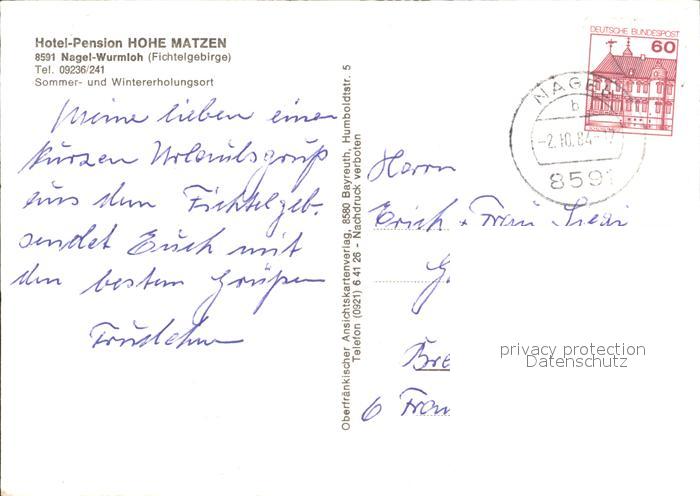 Hotel-Pension HOHE MATZEN
8591 Nagel-Wurmloh (Fichtelgebirge)
Tel. 09236/241
Sommer- und Wintererholungsort
Meine lieben einen
kurzen Urlaubsgruß
aus dem Fichtelgeb.
sendet Euch mit
den besten Grüßen
Trudchen
Oberfränkischer Ansichtskartenverlag, 8580 Bayreuth, Humboldtstr. 5
Telefon (0921) 6 41 26 - Nachdruck verboten
DEUTSCHE BUNDESPOST
60
NAGEL
b
-2.10.84-17
8591
Herrn
Erich + Frau
G.
Bre
6 Fran
privacy protection
Datenschutz